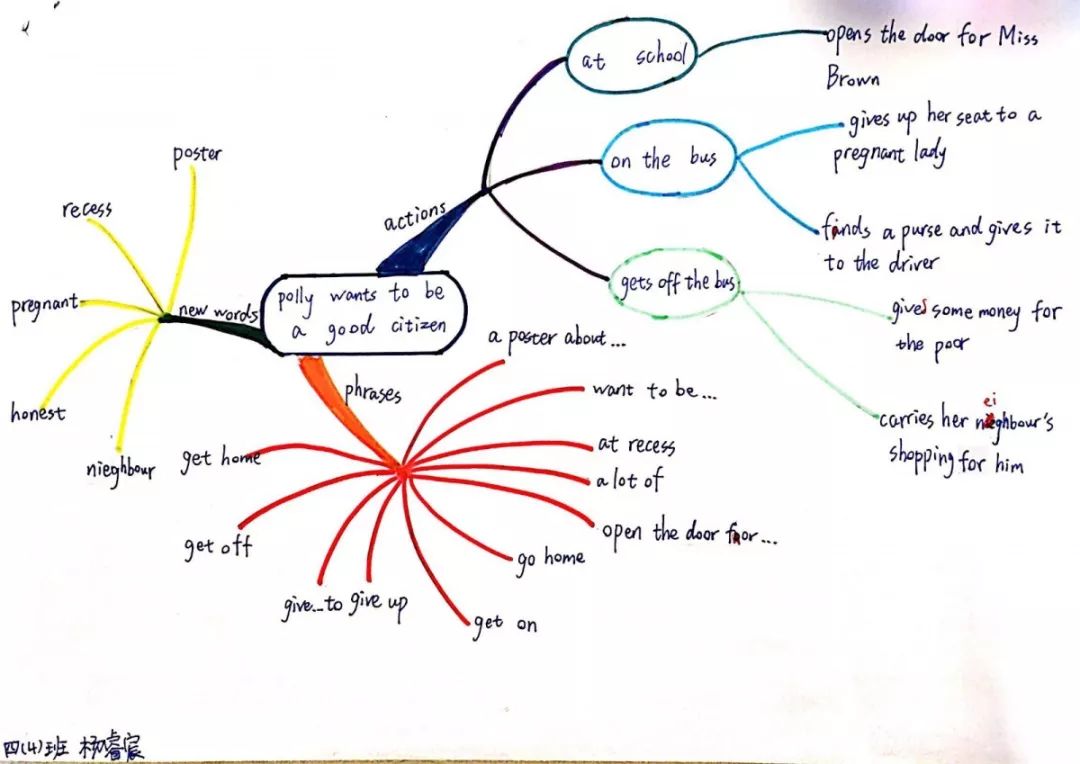 at school
opens the door for Miss
Brown
on the bus
gives up her seat to a
pregnant lady
finds a purse and gives it
to the driver
gets off the bus
gives some money for
the poor
ei
carries her neighbour's
shopping for him
actions
polly wants to be
a good citizen
new words
poster
recess
pregnant
honest
nieghbour
phrases
a poster about...
want to be...
at recess
a lot of
open the door for...
go home
get on
give up
give...to
get off
get home
四(4)班 杨睿宸